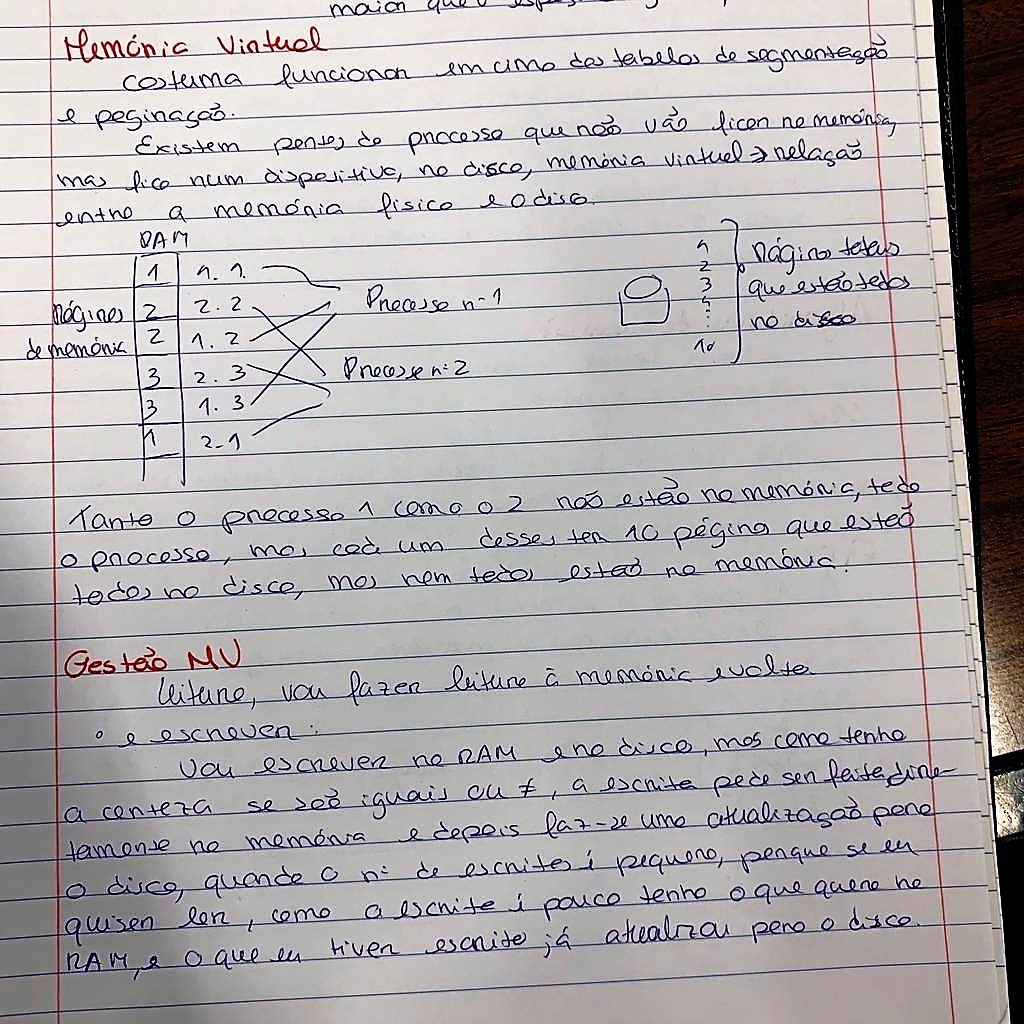 maior que o espaç
Memória Virtual
costuma funcionar em cima das tabelas de segmentação
e paginação.
Existem partes do processo que não vão ficar na memória,
mas fica num dispositivo, no disco, memória virtual → relação
entre a memória física e o disco.
RAM
1 1.1
2 2.2
2 1.2
3 2.3
3 1.3
1 2-1
Páginas
de memória
Processo nº 1
Processo nº 2
1
2
3
4
⋮
10
Páginas totais
que estão todas
no disco
Tanto o processo 1 como o 2 não estão na memória, todo
o processo, mas cada um desses tem 10 página que estão
todas no disco, mas nem todas estão na memória.
Gestão MV
leitura, vou fazer leitura à memória e volta
e escrever:
Vou escrever na RAM e no disco, mas como tenho
a certeza se são iguais ou ≠, a escrita pode ser feita dire-
tamente na memória e depois faz-se uma atualização para
o disco, quando o nº de escritas é pequeno, porque se eu
quiser ler, como a escrita é pouco tenho o que quero na
RAM, e o que eu tiver escrito já atualizou para o disco.